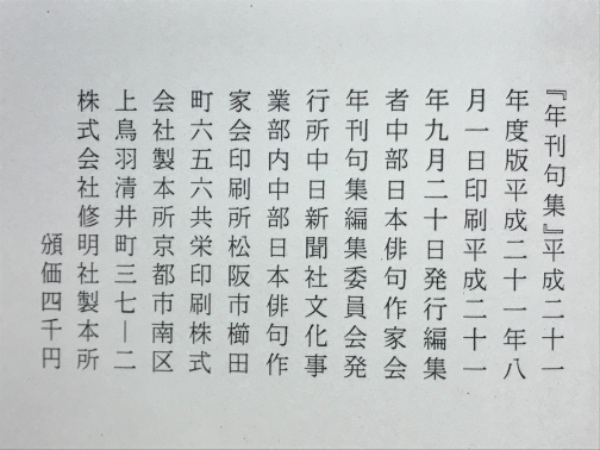 『年刊句集』平成二十一
年度版平成二十一年八
月一日印刷平成二十一
年九月二十日発行編集
者中部日本俳句作家会
年刊句集編集委員会発
行所中日新聞社文化事
業部内中部日本俳句作
家会印刷所松阪市櫛田
町六五六共栄印刷株式
会社製本所京都市南区
上鳥羽清井町三七―二
株式会社修明社製本所
頒価四千円